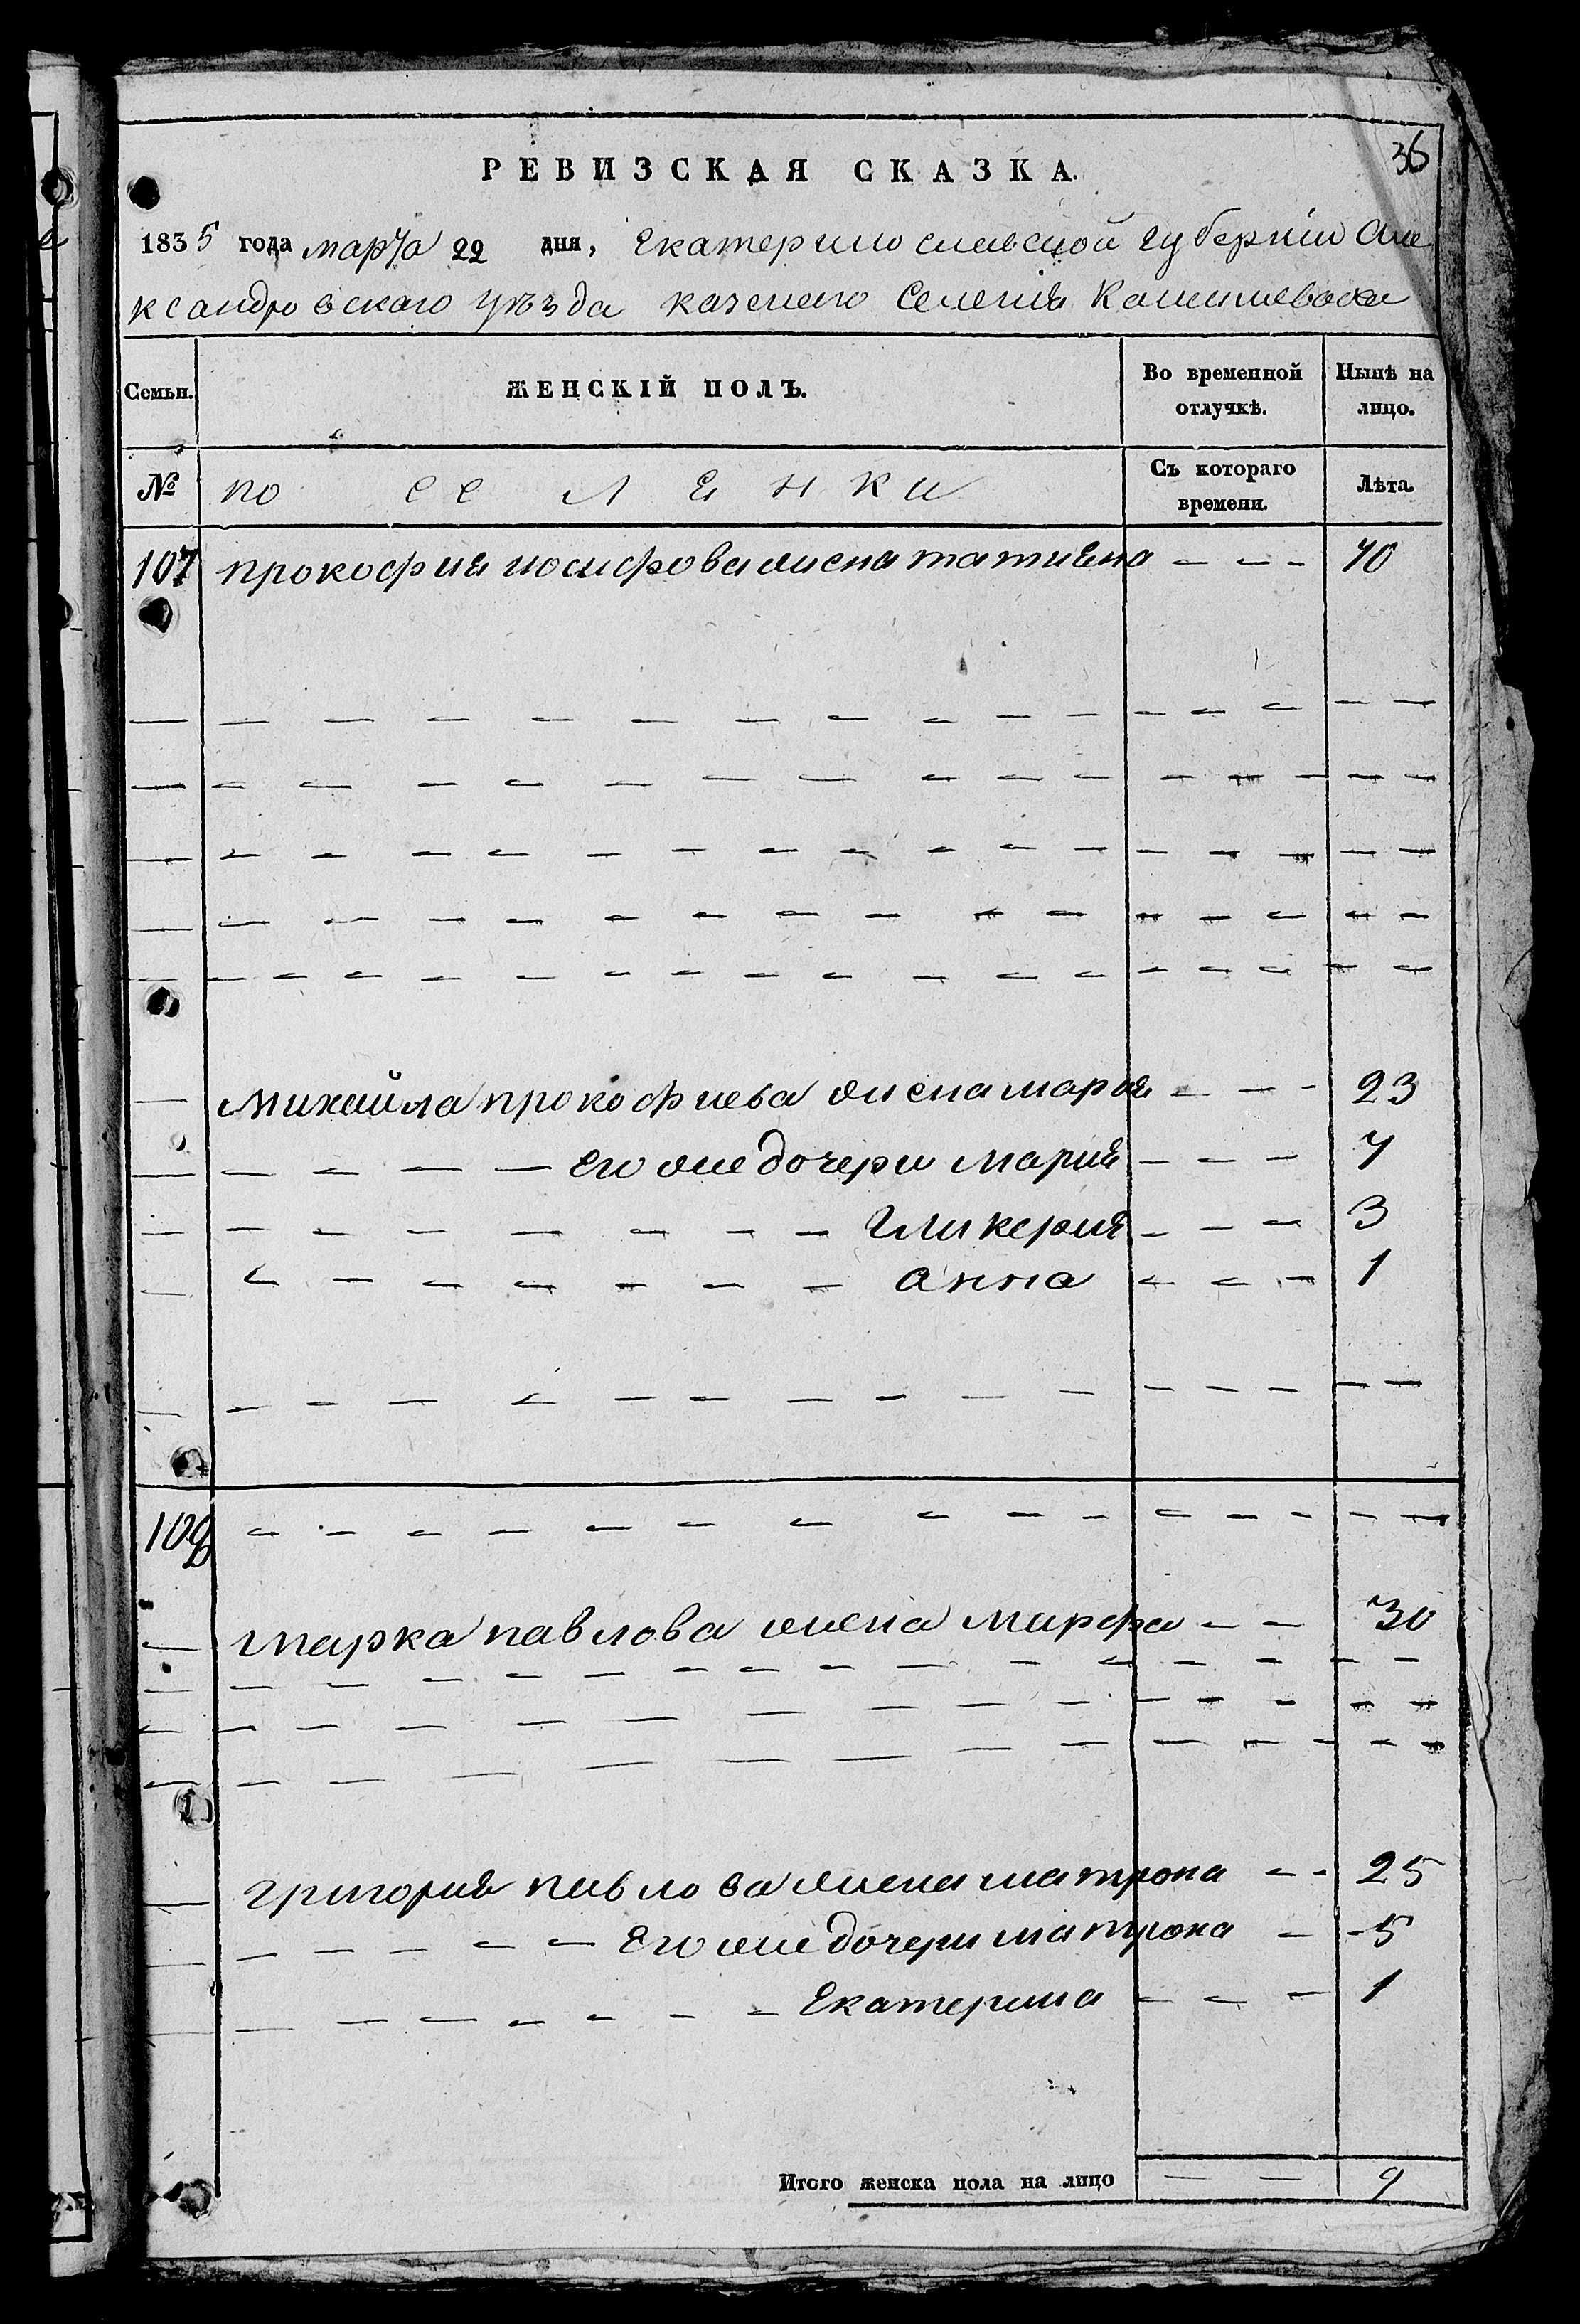 36
РЕВИЗСКАЯ СКАЗКА.
1835 года марта 22 дня, Екатеринославской губернии Але
ксандровскаго уѣзда казенаго Селения Камишевахи
Семьи. ЖЕНСКІЙ ПОЛЪ. Во временной отлучкѣ. Нынѣ на лицо.
№ посселенки Съ котораго времени. Лѣта.
107 прокофия иосифова жена татияна - - - 70
михайла прокофиева жена марья - - - 23
его же дочери мария - - - 7
гликерия - - - 3
анна - - - 1
108
марка павлова жена марфа - - 30
григория павлова жена матрона - - 25
его же дочери матрона - 5
Екатерина - - - 1
Итого женска пола на лицо — — 9